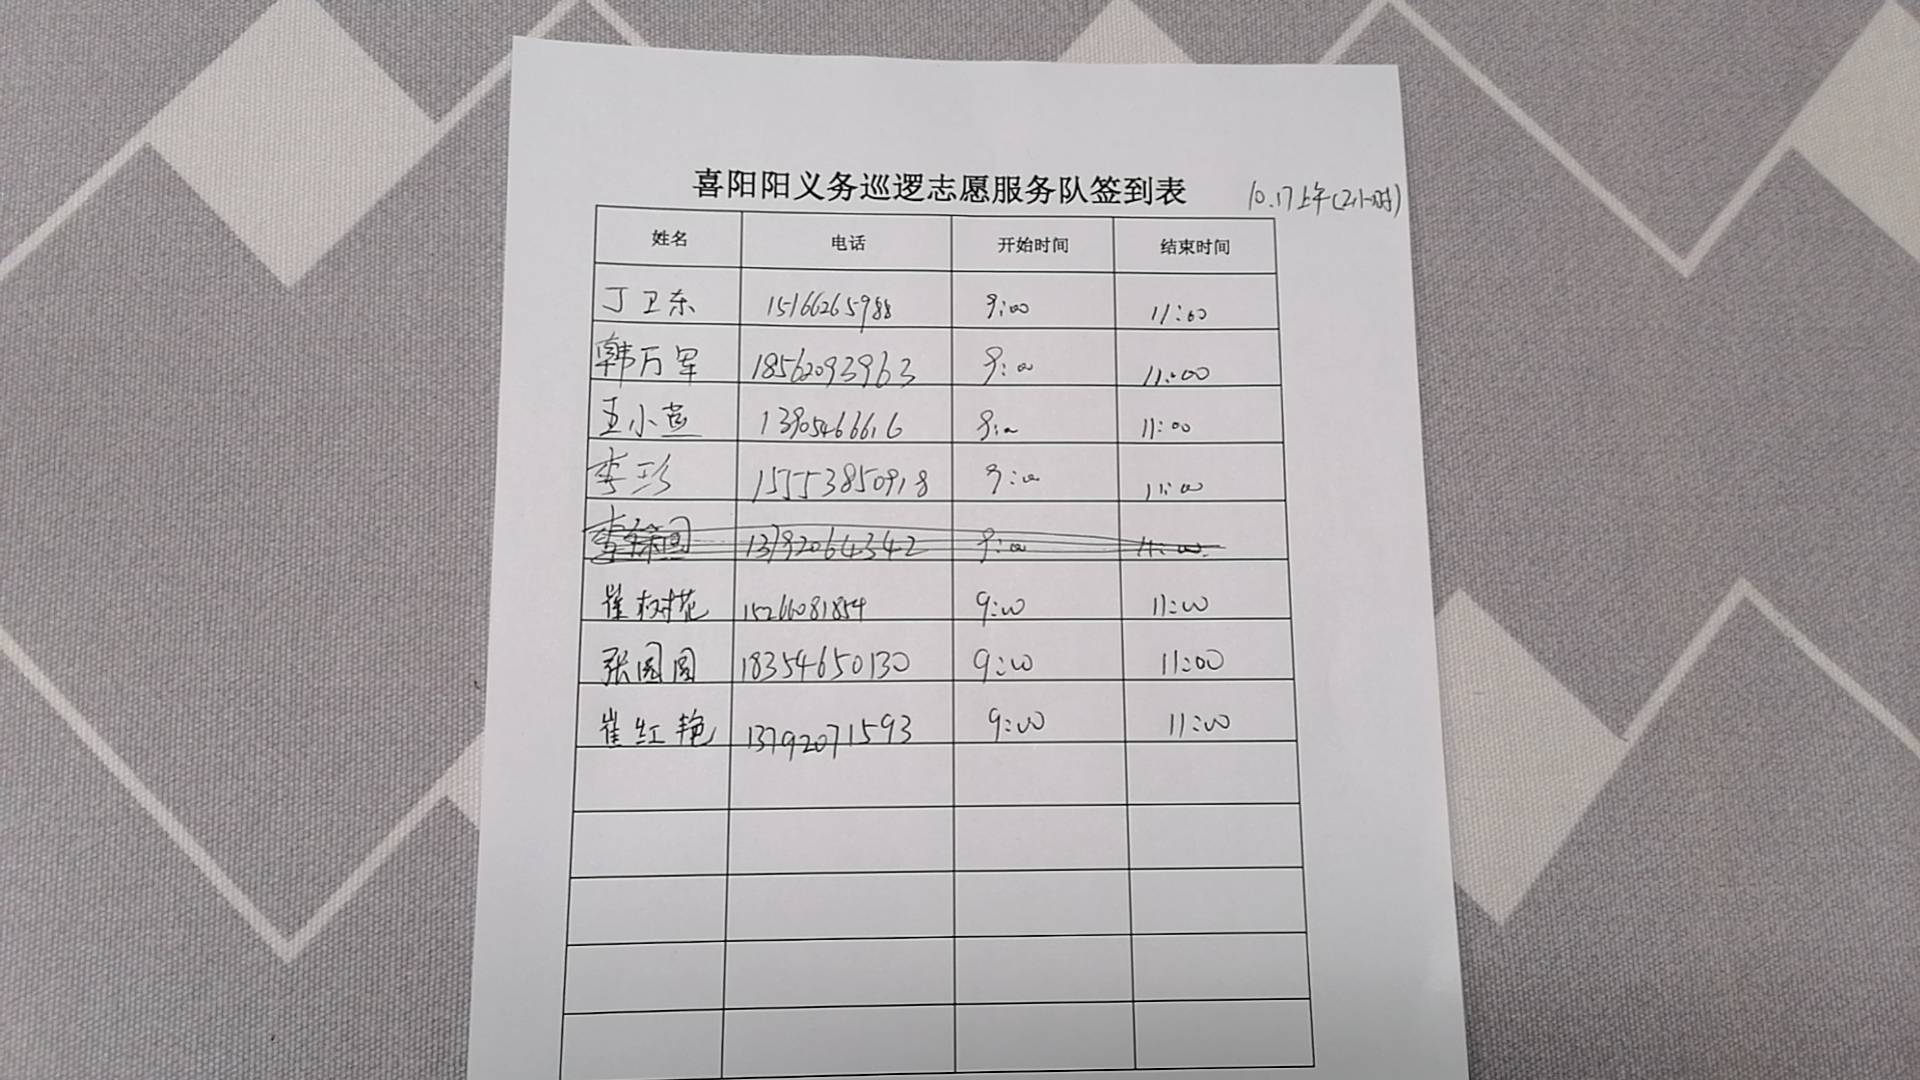 喜阳阳义务巡逻志愿服务队签到表 10.17上午(2小时)
姓名 电话 开始时间 结束时间
丁卫东 15166265988 9:00 11:00
韩万军 18562093963 9:00 11:00
王小 13905466616 9:00 11:00
李珍 15553850918 9:00 11:00
李 13792064342 9:00 11:00
崔树花 15266081854 9:00 11:00
张圆圆 18354650130 9:00 11:00
崔红艳 13792071593 9:00 11:00